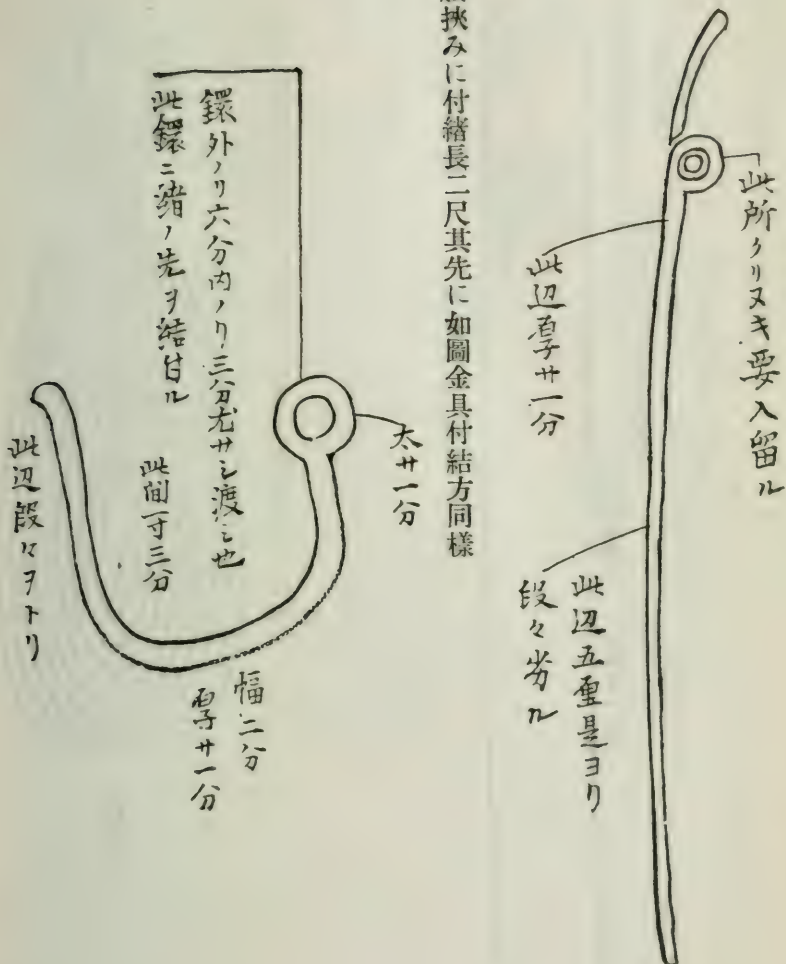 此所クリヌキ要入留ル
此辺厚サ一分
此辺五厘是ヨリ
段々劣ル
挾みに付緖長二尺其先に如圖金具付結方同樣
太サ一分
鐶外ノリ六分内ノリ三分尤サシ渡シ也
此鐶ニ緒ノ先ヲ結付ル
此間一寸三分
幅二分
厚サ一分
此辺段々ヲトリ